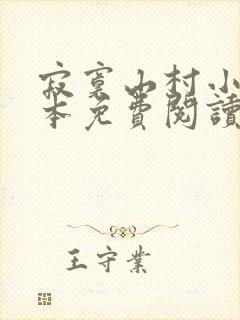 寂寞山村小
本免費閱讀
王守業